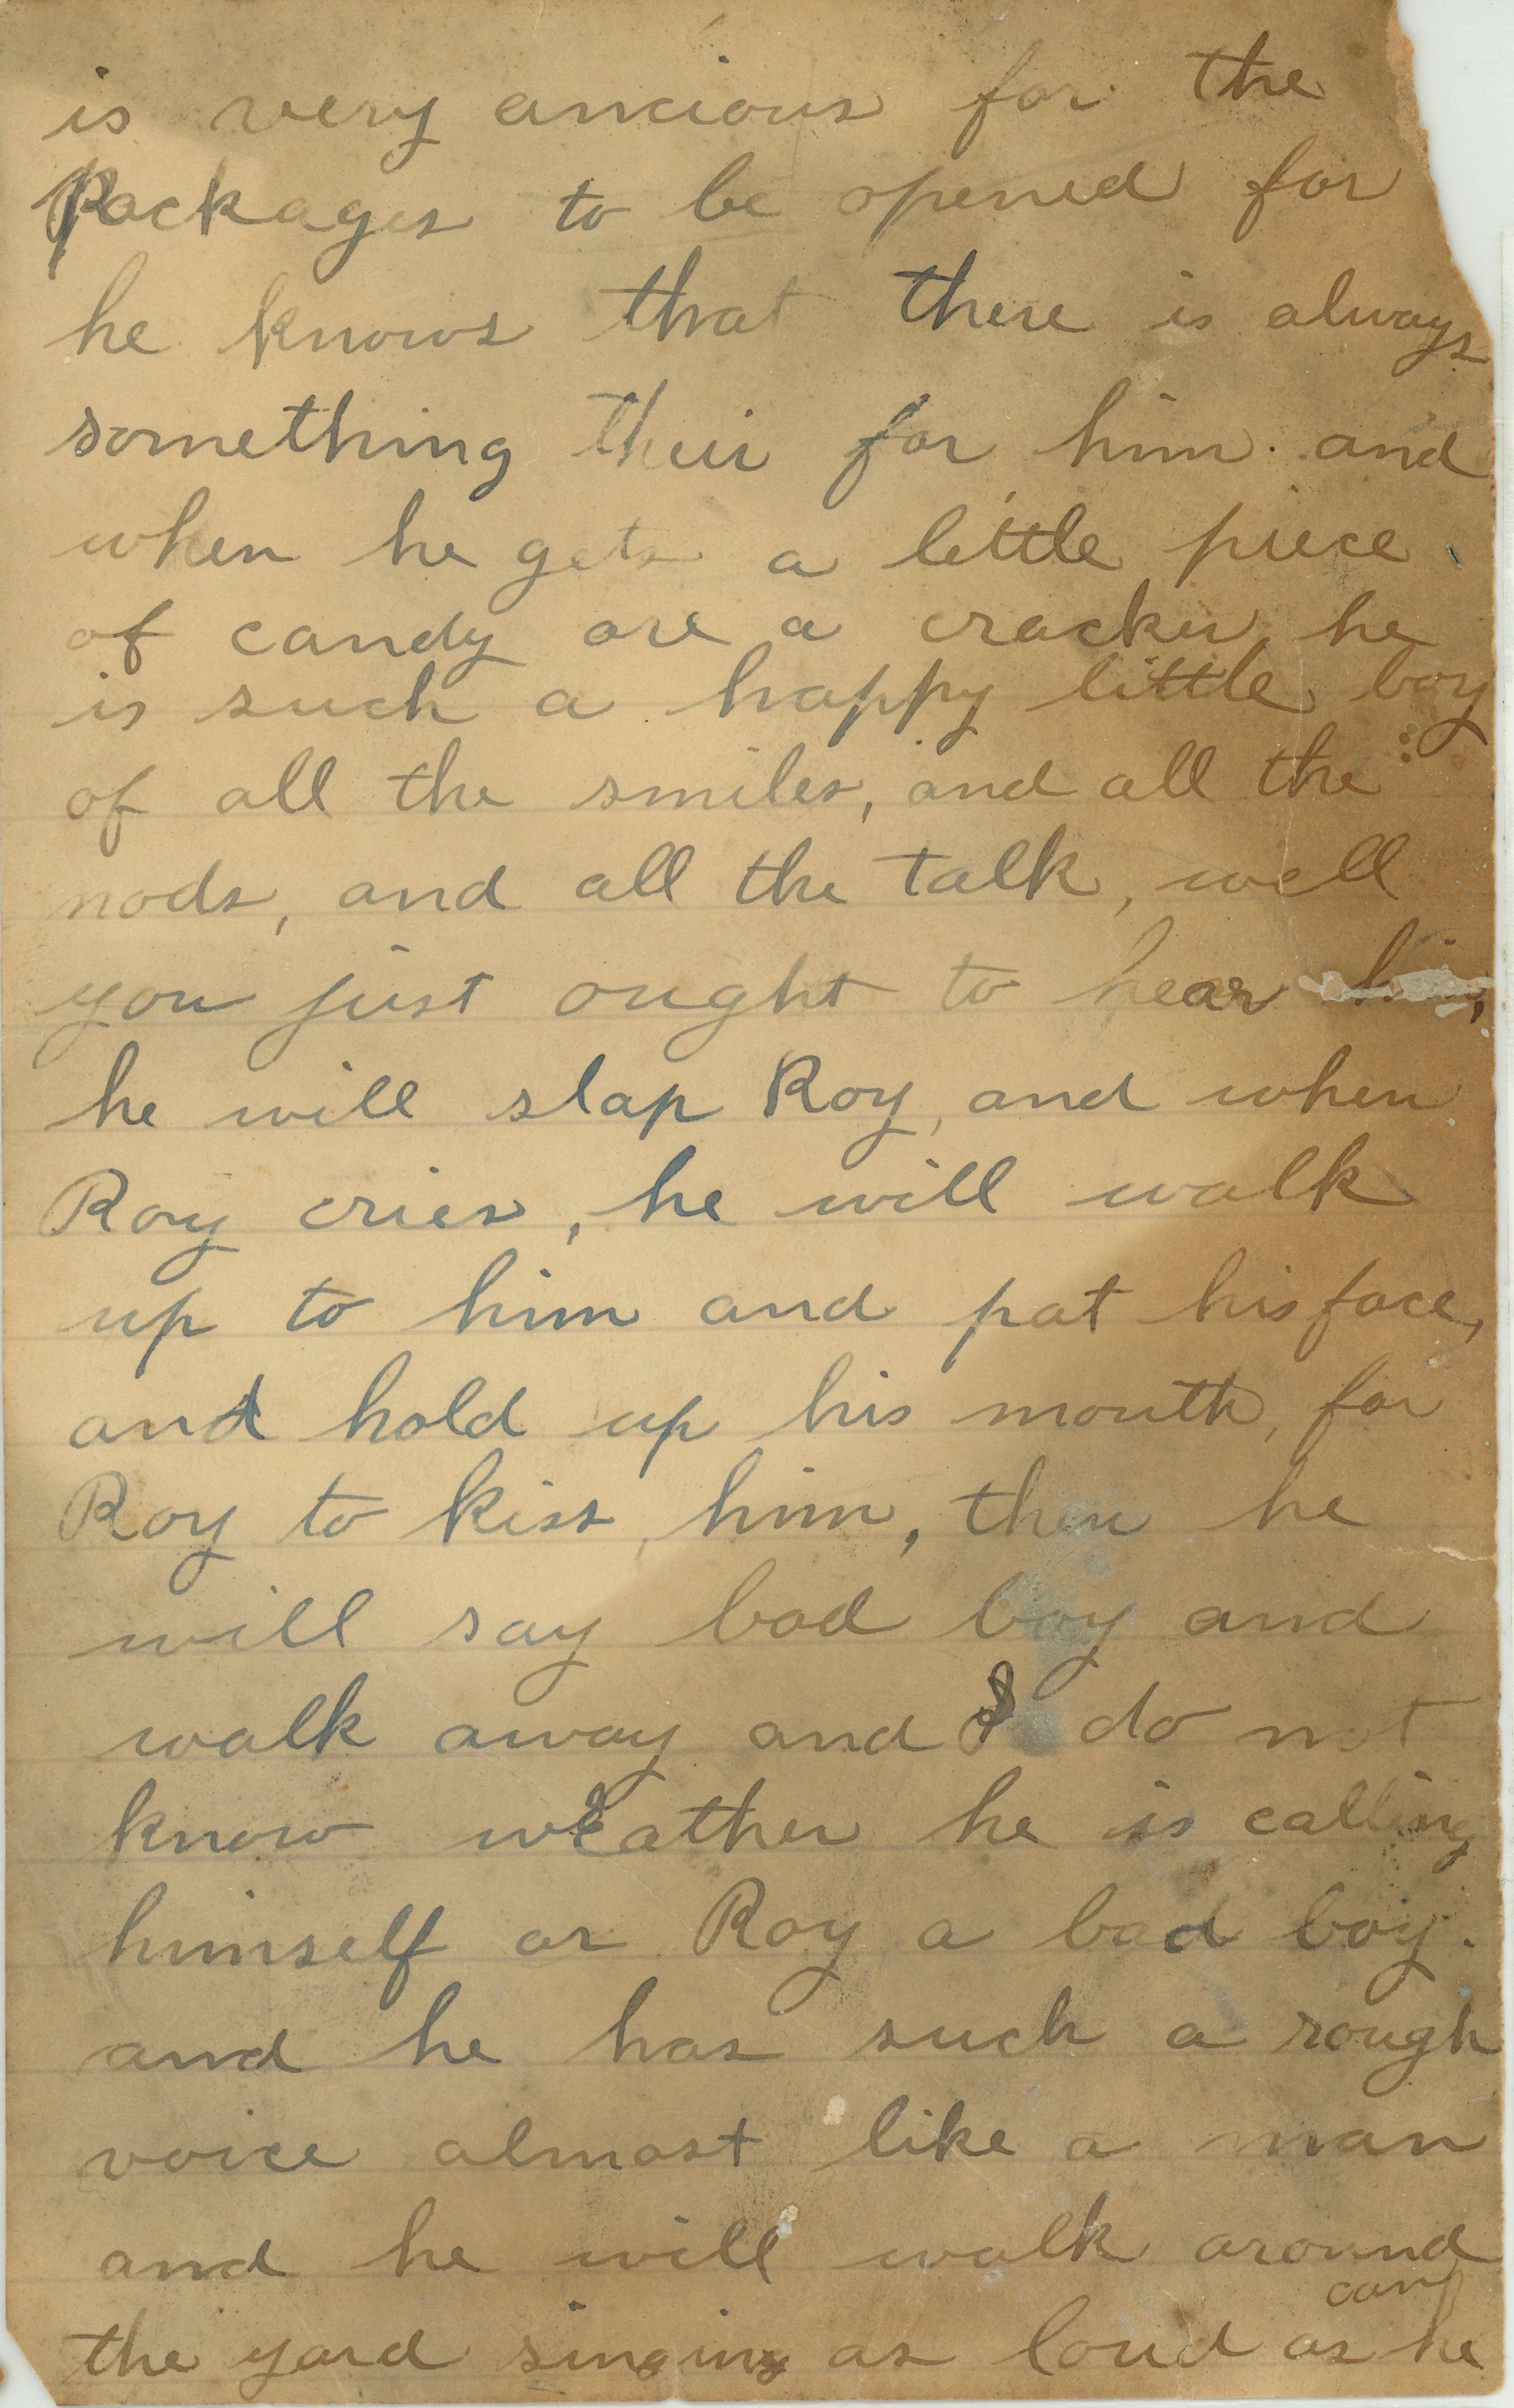 is very ancious for the
Packages to be opened for
he knows that there is always
something their for him. and
when he gets a little piece
of candy ore a cracker he
is such a happy little boy
of all the smiles, and all the
nods, and all the talk, well
you just ought to hear him,
he will slap Roy, and when
Roy cries, he will walk
up to him and pat his face,
and hold up his mouth, for
Roy to kiss, him, then he
will say bad boy and
walk away and I do not
know weather he is calling
himself or Roy a bad boy.
and he has such a rough
voice almost like a man
and he will walk around
can
the yard singing as loud as he